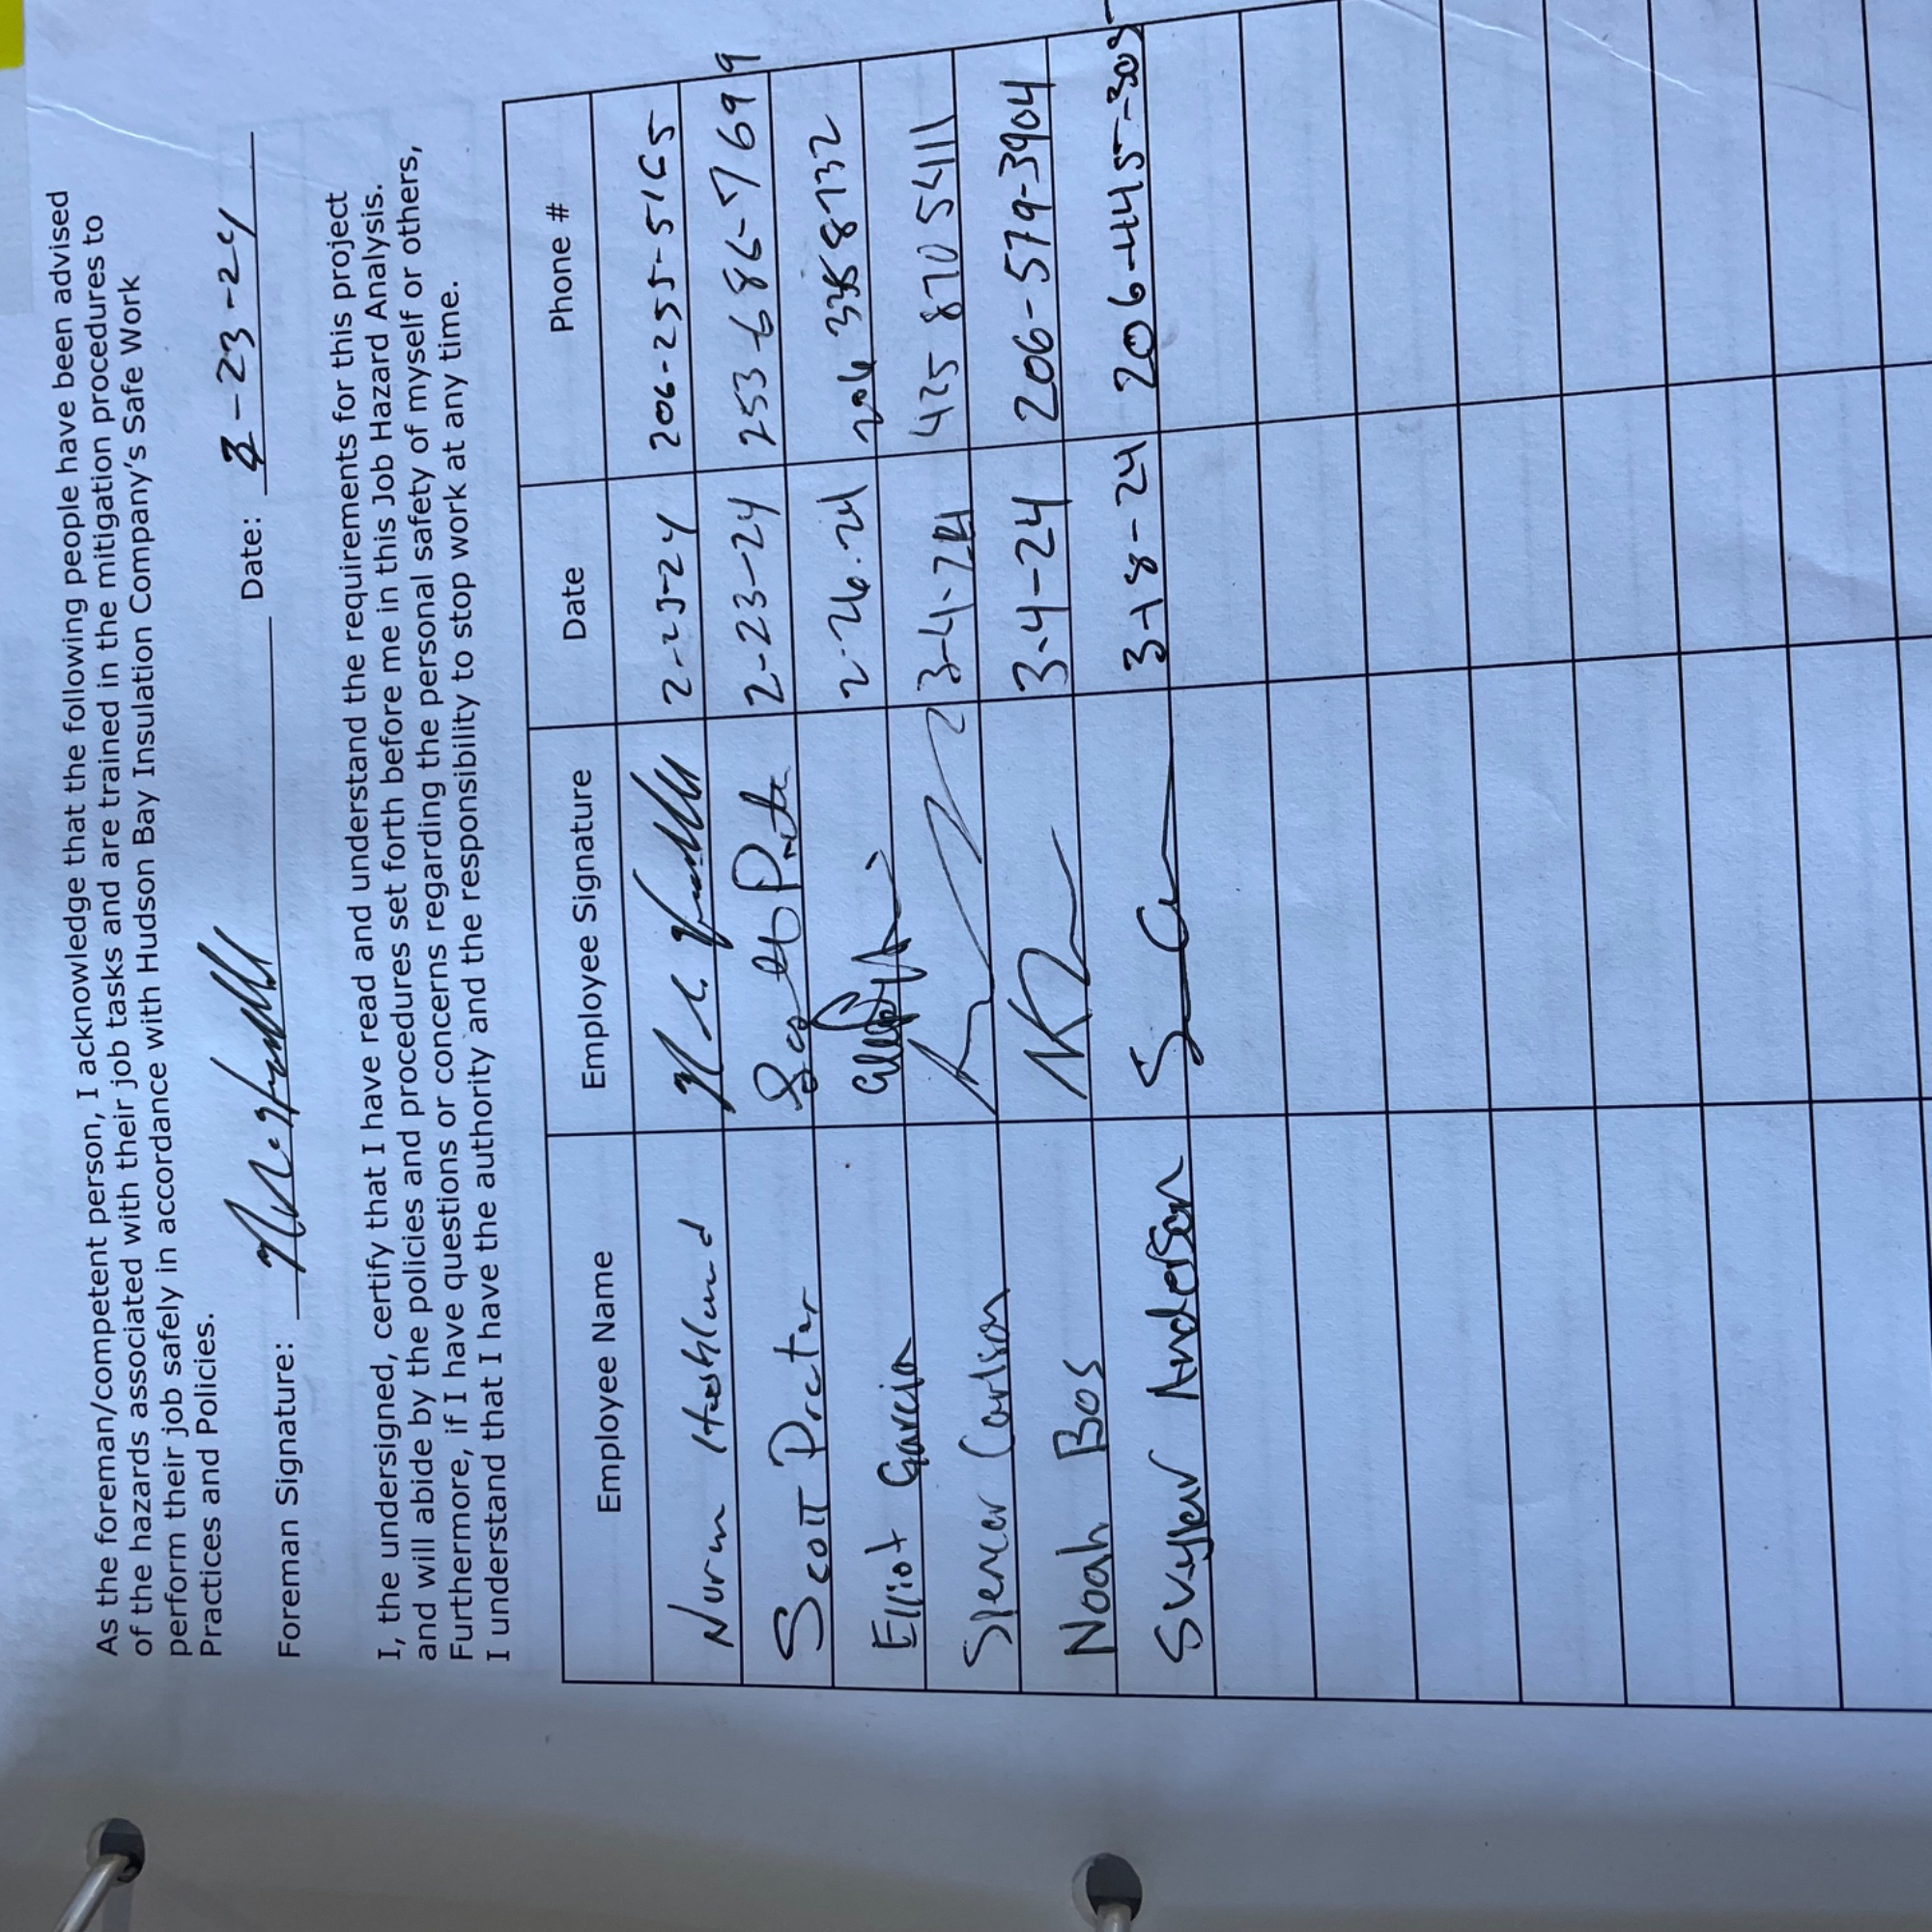 As the foreman/competent person, I acknowledge that the following people have been advised
of the hazards associated with their job tasks and are trained in the mitigation procedures to
perform their job safely in accordance with Hudson Bay Insulation Company's Safe Work
Practices and Policies.
Foreman Signature: Date: 2-23-24
I, the undersigned, certify that I have read and understand the requirements for this project
and will abide by the policies and procedures set forth before me in this Job Hazard Analysis.
Furthermore, if I have questions or concerns regarding the personal safety of myself or others,
I understand that I have the authority and the responsibility to stop work at any time.
Employee Name Employee Signature Date Phone #
Norm 2-23-24 206-255-5165
Scott Proctor 2-23-24 253-686-7699
Elliot Garcia 2-26-24 206
Spencer Carlson 3-4-24 425 870 5411
Noah Bos 3-4-24 206-579-3904
Anderson 3-18-24 206-445-